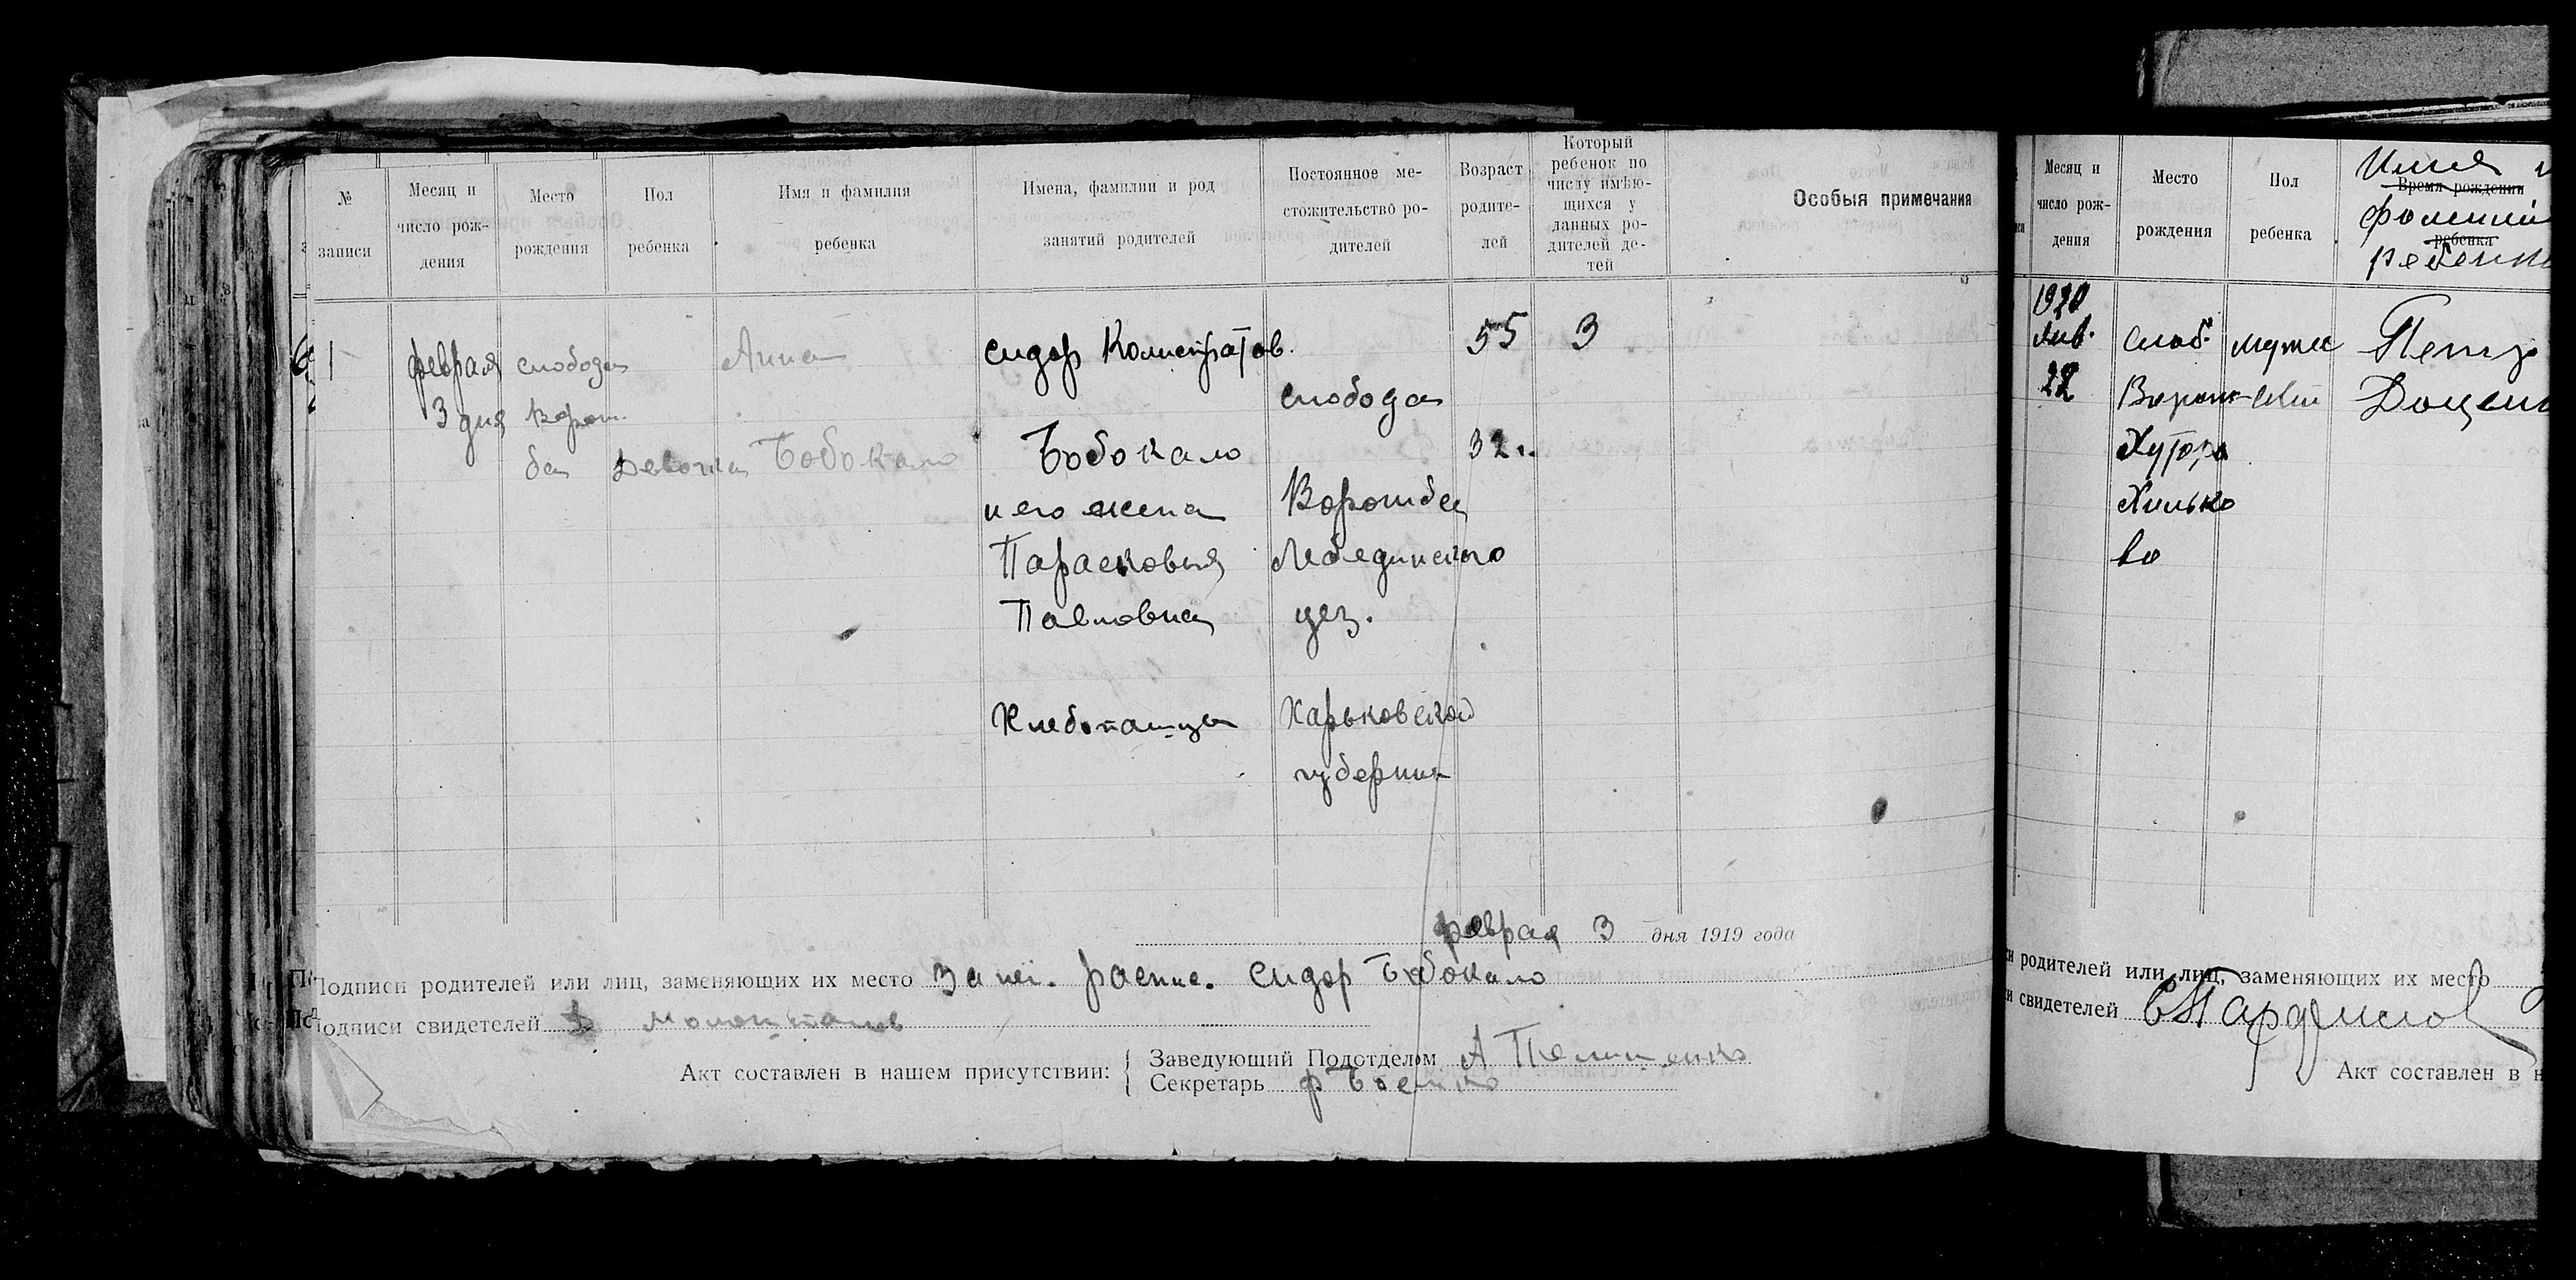 № записи
Месяц и число рождения
Место рождения
Пол ребенка
Имя и фамилия ребенка
Имена, фамилии и род занятий родителей
Постоянное местожительство родителей
Возраст родителей
Который ребенок по числу имѣющихся у данных родителей детей
Особыя примечания
1
февраля
3 дня
слобода
Ворож
ба
Девочка
Анна
Бобокало
сидор
Бобокало
и его жена
Парасковья
Павловна
Хлебопашцы
слобода
Ворожба
Лебединского
уез.
Харьковской
губернии
55
32
3
февраля 3 дня 1919 года
Подписи родителей или лиц, заменяющих их место За неё. распис. Сидор Бобокало
Подписи свидетелей
Акт составлен в нашем присутствии:
Заведующий Подотделом А
Секретарь
Месяц и число рождения
Место рождения
Пол ребенка
Имя и
Время рождения
фамилий
ребенка
ребенка
1920
Янв.
22
Слоб.
Ворож
Хутора
Хилько
во
мужс
ский
Петр
Доцен
родителей или лиц, заменяющих их место
свидетелей
Акт составлен в н